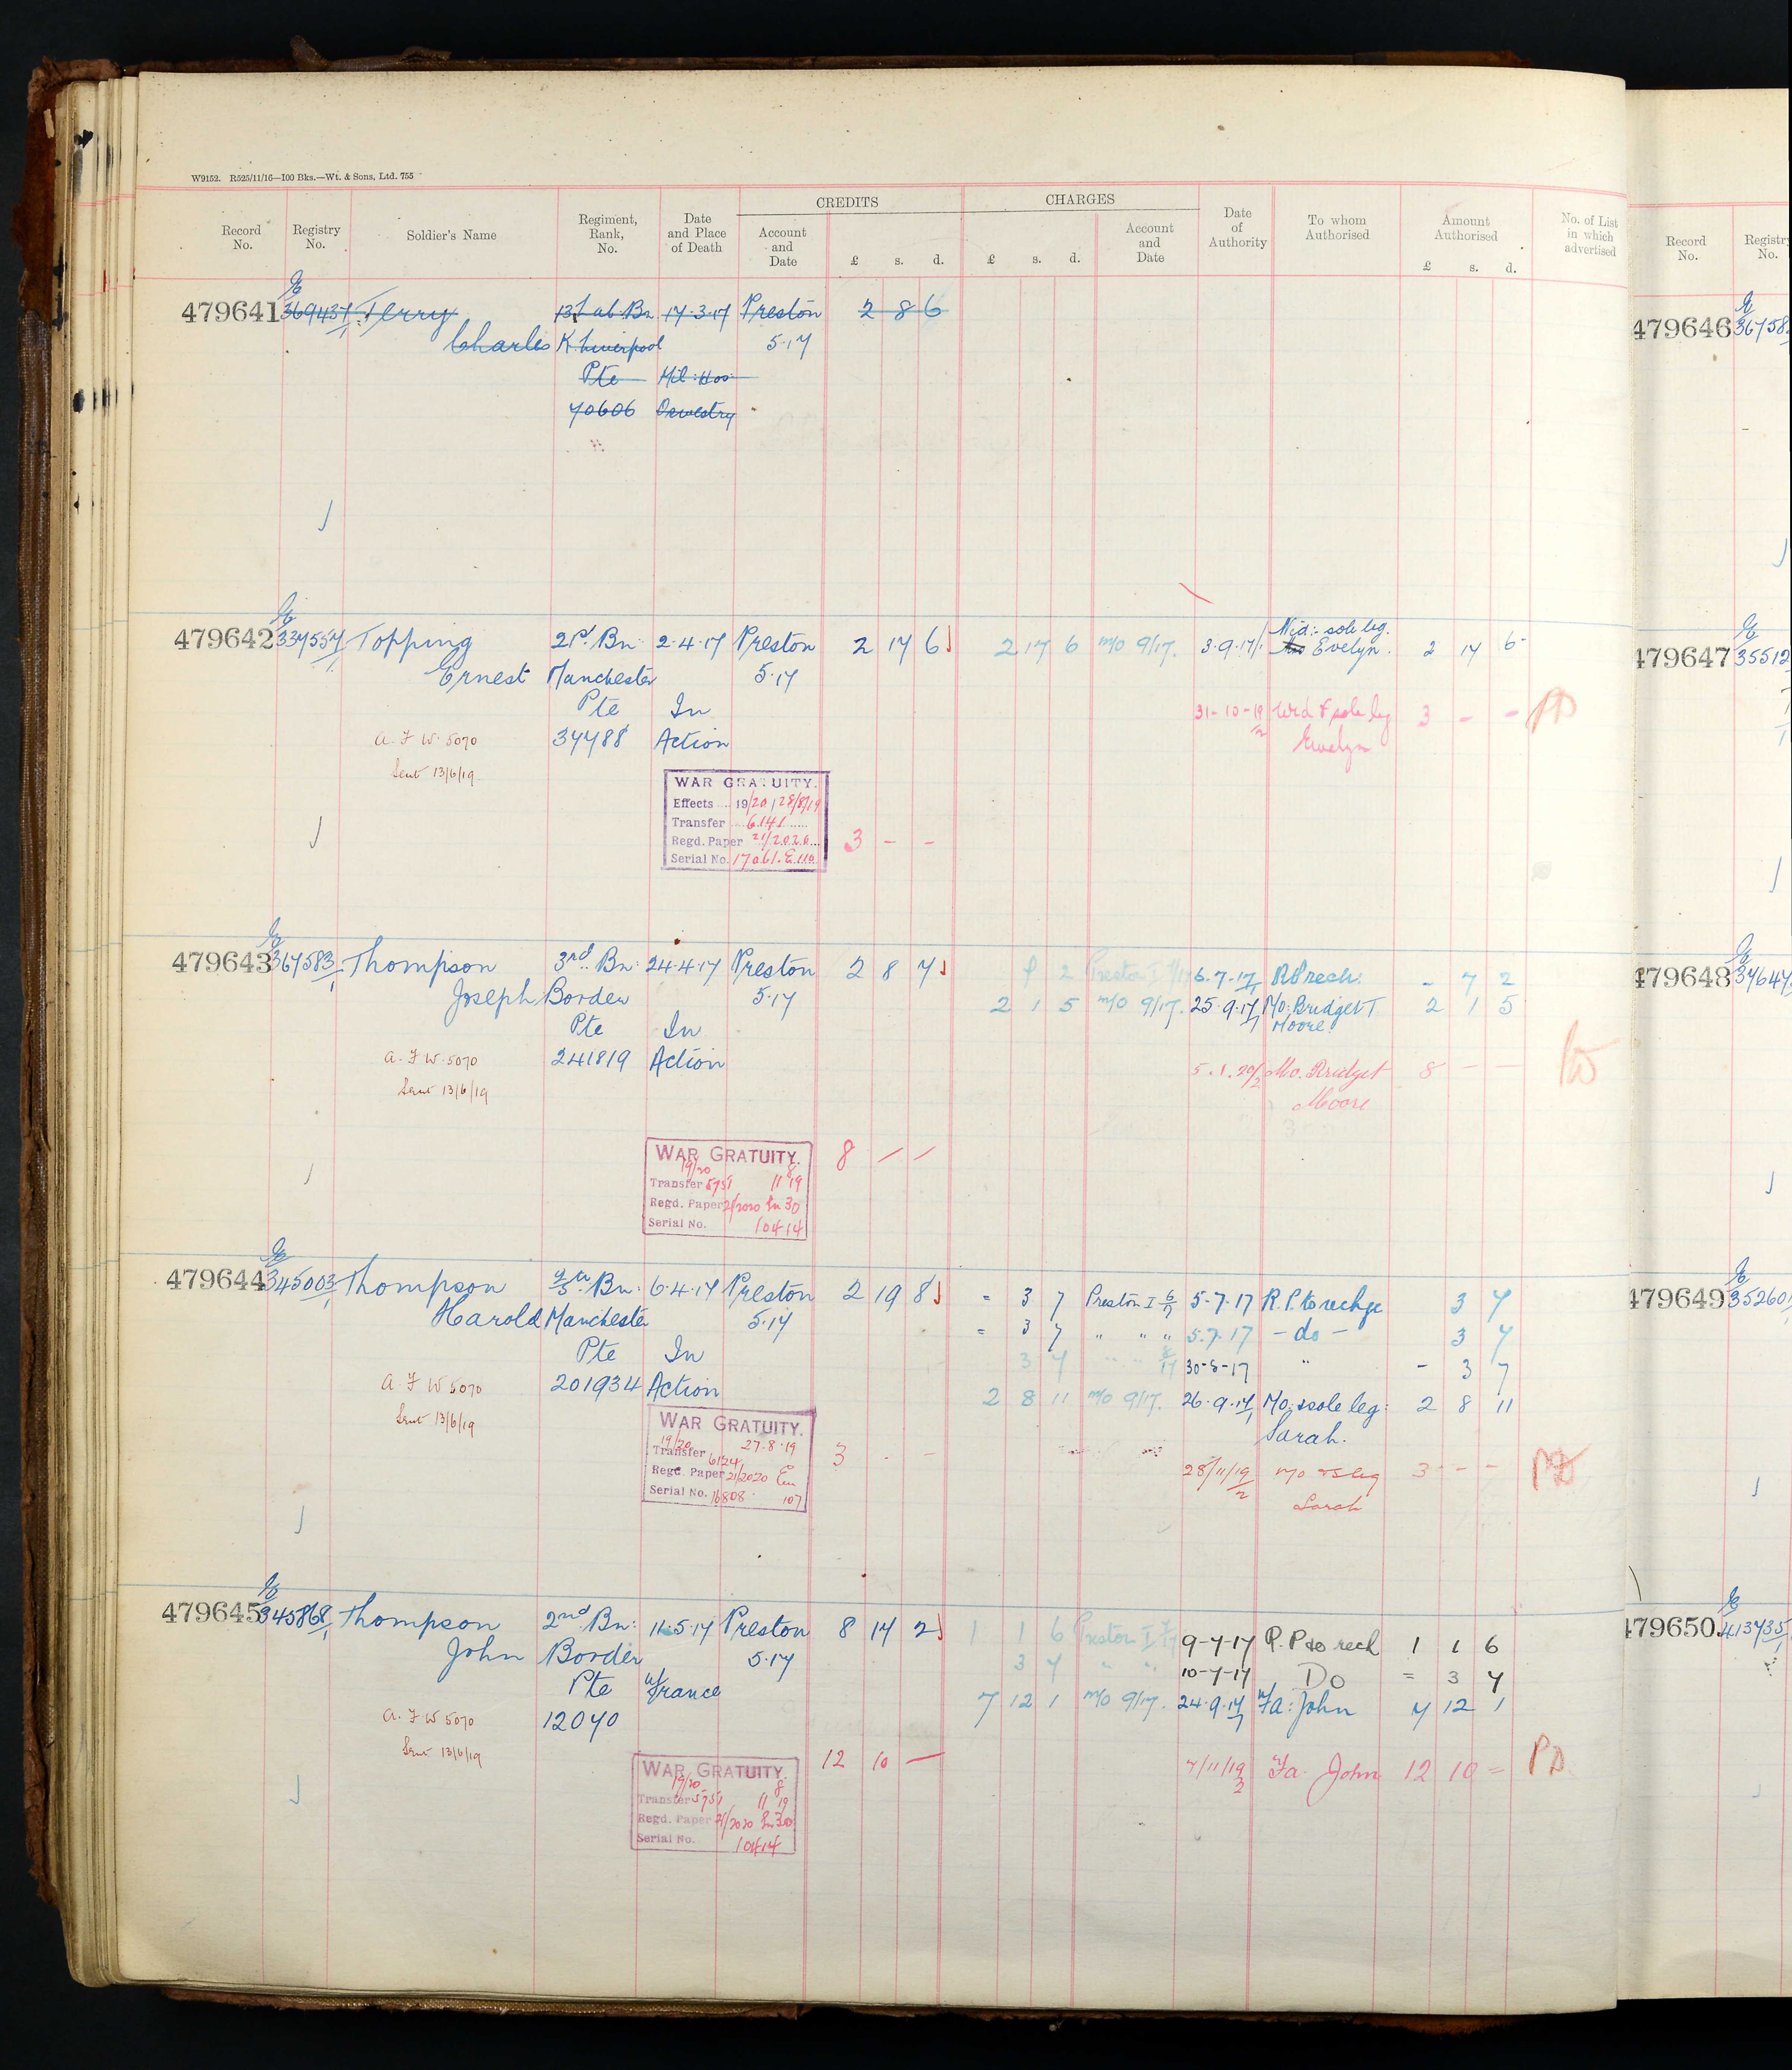 W9152. R525/11/16—100 Bks.—Wt. & Sons, Ltd. 755
CREDITS CHARGES
Record No. Registry No. Soldier's Name Regiment, Rank, No. Date and Place of Death Account and Date £ s. d. £ s. d. Account and Date Date of Authority To whom Authorised Amount Authorised £ s. d. No. of List in which advertised
Record No. Registry No.
E
479641 369437/1 Terry 13 Lab. Bn 17.3.17 Preston 2 8 6
Charles K. Liverpool 5.17
Pte Mil: Hos:
70606 Oswestry
E
479642 337557/1 Topping 2nd Bn: 2.4.17 Preston 2 17 6 2 17 6 m/o 9/17. 3.9.17/1 Wid:- sole leg. Evelyn. 2 17 6
Ernest Manchester 5.17
Pte In 31-10-19/2 Wid & sole leg Evelyn 3 - -
A. F. W. 5070 37488 Action
Sent 13/6/19
WAR GRATUITY.
Effects 19/20 / 28/8/19
Transfer 6141
Regd. Paper 21/2020 3 - -
Serial No. 17061. E.110
E
479643 367583/1 Thompson 3rd Bn: 24.4.17 Preston 2 8 7 7 2 Preston I 6.7.17/1 RP rech: - 7 2
Joseph Border 5.17 2 1 5 m/o 9/17. 25.9.17/1 Mo: Bridget T Moore. 2 1 5
Pte In
A. F. W. 5070 241819 Action 5.1.20/2 Mo. Bridget Moore 8 - -
Sent 13/6/19
WAR GRATUITY. 8 - -
19/20 8
Transfer 5751 11 19
Regd. Paper 21/2020 En 30
Serial No. 10414
E
479644 345003/1 Thompson 2/5th Bn: 6.4.17 Preston 2 19 8 = 3 7 Preston I 6/17 5-7-17 R.P. to rechge 3 7
Harold Manchester 5.17 = 3 7 " " " 5.7.17 - do - 3 7
Pte In 3 7 " " 30-8-17 " - 3 7
A. F. W. 5070 201934 Action 2 8 11 m/o 9/17. 26.9.17/1 Mo: & sole leg: Sarah. 2 8 11
Sent 13/6/19
WAR GRATUITY.
19/20 27-8-19 3 - -
Transfer 6124
Regd. Paper 21/2020 En 28/11/19/2 Mo & s leg Sarah 3 - -
Serial No. 16808 107
E
479645 345868/1 Thompson 2nd Bn: 11.5.17 Preston 8 17 2 1 1 6 Preston I 9-7-17 R.P. to rech 1 1 6
John Border 5.17 3 7 " " 10-7-17 Do = 3 7
Pte W/ France 7 12 1 m/o 9/17. 24.9.17/1 Fa: John 7 12 1
A. F. W. 5070 12070
Sent 13/6/19
WAR GRATUITY. 12 10 - 7/11/19/2 Fa. John 12 10 = PD.
19/20 8
Transfer 5751 11 19
Regd. Paper 21/2020 En 30
Serial No. 10414
E
479646 36758
E
479647 35512
E
479648 37647
E
479649 352601
E
479650 413735